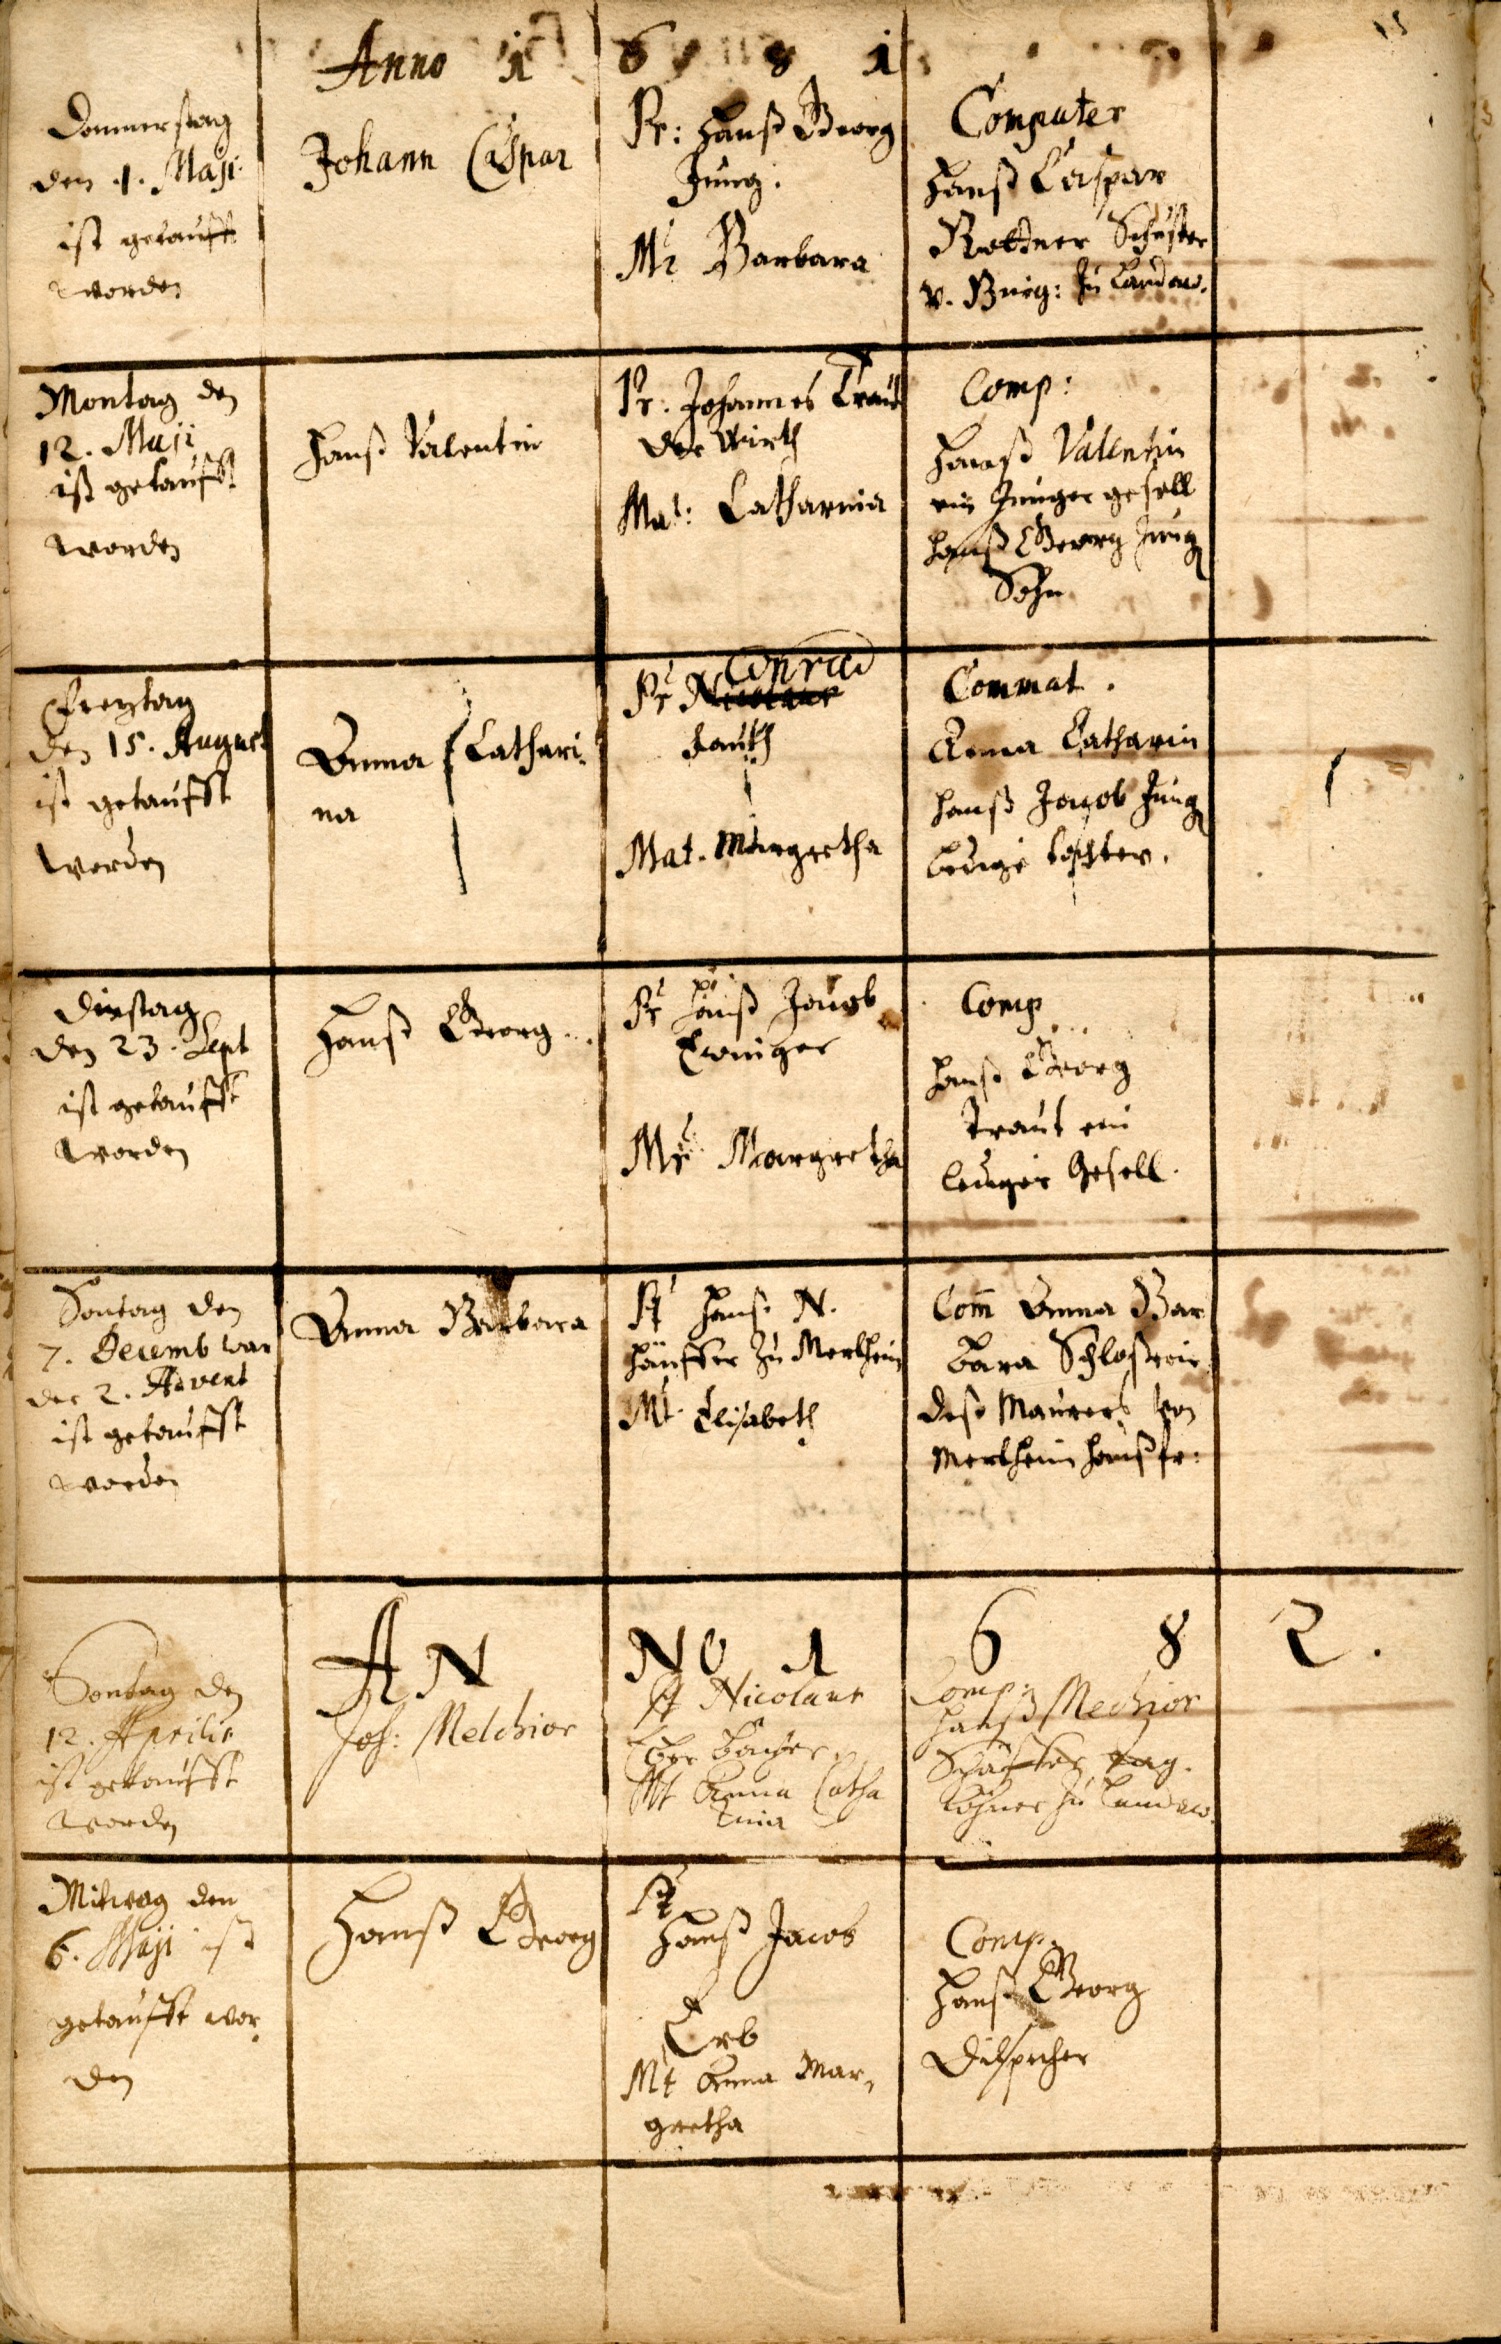 Anno 1681
Donnerstag
den 1. Maji
ist getaufft
worden
Johann Caspar
Pr: Hanß Georg
Jung.
Mr Barbara
Computer
Hanß Caspar
Schuster
v. Burg: zu Landaw.
Montag den
12. Maji
ist getaufft
worden
Hanß Valentin
Pr. Johannes Traut
der Wirth
Mat: Catharina
Comp:
Hanß Valentin
ein Junger gesell
Hanß Georg Jung
Sohn
Freytag
den 15. August
ist getaufft
worden
Anna Cathari-
na
Conrad
Pr Nicolaus
fauth
Mat. Margretha
Commat.
Anna Catharin
Hanß Jacob Jung
ledige tochter.
Dinstag
den 23. Sept
ist getaufft
worden
Hanß Georg
Pr Hanß Jacob
Mr Margretha
Comp
Hanß Georg
Traut ein
lediger Gesell.
Sontag den
7. Decemb war
der 2. Advent
ist getaufft
worden
Anna Barbara
Pt Hanß N.
zu Merlheim
Mt. Elisabeth
Com Anna Bar
bara Schloßerin
deß Maurers von
Merlheim haußfr:
ANNO 1682.
Sontag den
12. Aprilis
ist getaufft
worden
Joh: Melchior
Pt Nicolaus
Mt Anna Catha
rina
Comp:
Hanß Mechior
Schäffer tag-
löhner zu Landaw.
Mitwog den
6. Maji ist
getaufft wor-
den
Hanß Georg
Pt
Hanß Jacob
Erb
Mt Anna Mar-
gretha
Comp.
Hanß Georg